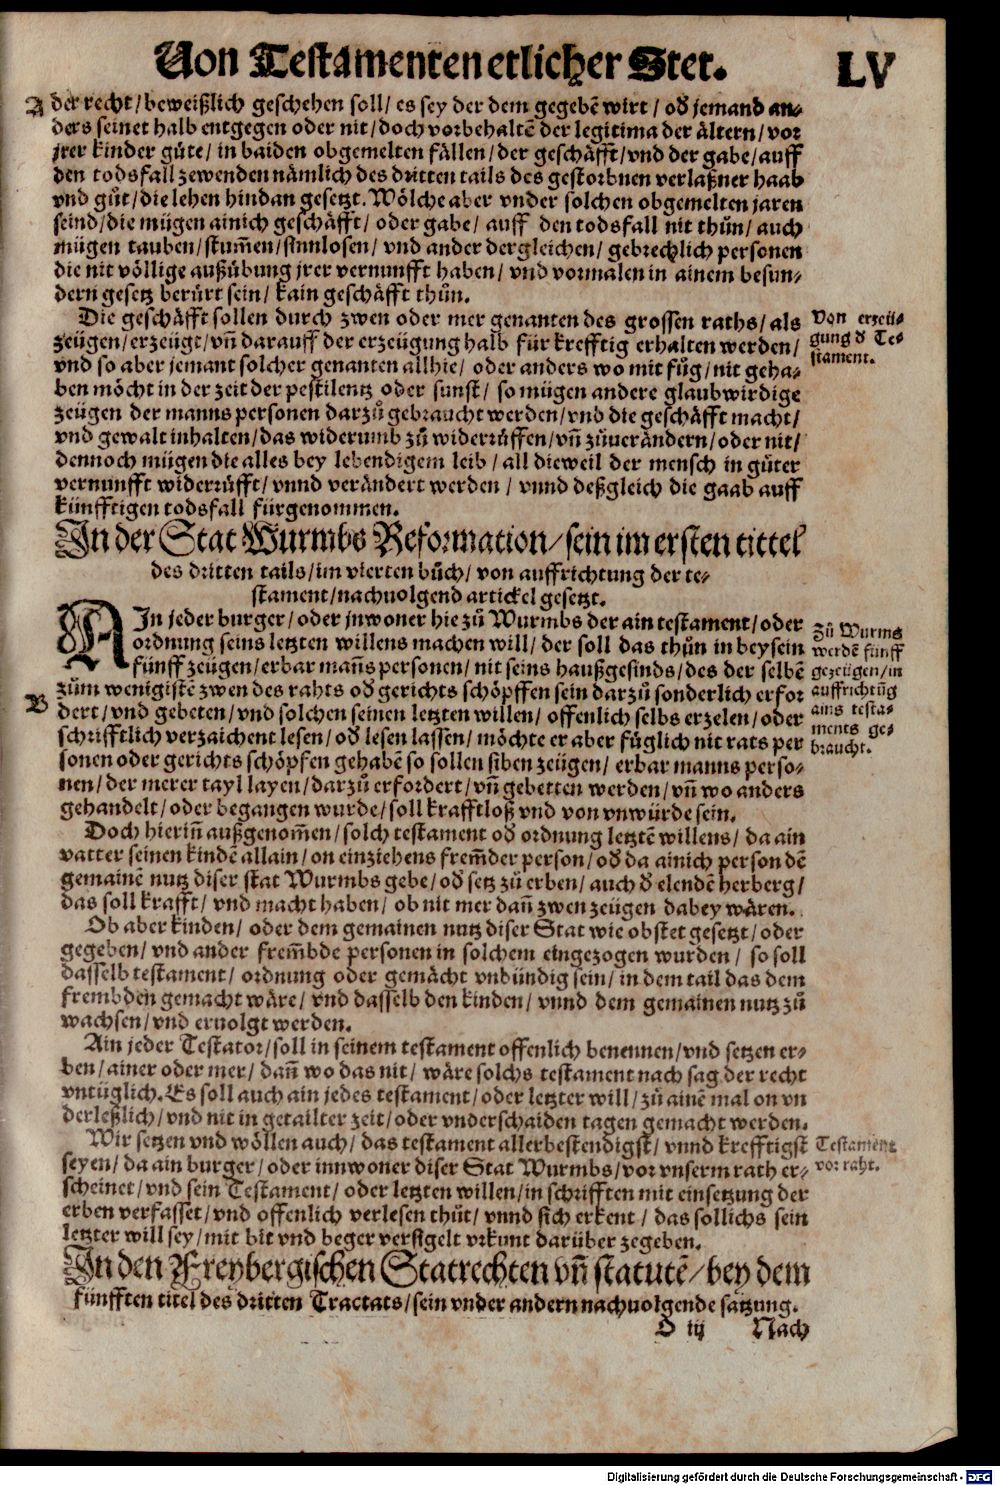 Von Testamenten etlicher Stet. LV
A der recht / beweißlich geschehen soll / es sey der dem gegebē wirt / od jemand an-
ders seinet halb entgegen oder nit / doch vorbehaltē der legitima der ältern / vor
jrer kinder gůte / in baiden obgemelten fällen / der geschäfft / vnd der gabe / auff
den todsfall zewenden nämlich des dritten tails des gestorbnen verlaßner haab
vnd gůt / die lehen hindan gesetzt. Wölche aber vnder solchen obgemelten jaren
seind / die mügen ainich geschäfft / oder gabe / auff den todsfall nit thůn / auch
mügen tauben / stum̄en / sinnlosen / vnd ander dergleichen / gebrechlich personen
die nit völlige außübung jrer vernunfft haben / vnd vormalen in ainem besun-
dern gesetz berürt sein / kain geschäfft thůn.
Die geschäfft sollen durch zwen oder mer genanten des grossen raths / als
zeügen / erzeügt / vn̄ darauff der erzeügung halb für krefftig erhalten werden /
vnd so aber jemant solcher genanten allhie / oder anders wo mit fůg / nit geha-
ben möcht in der zeit der pestilentz oder sunst / so mügen andere glaubwirdige
zeügen der manns personen darzů gebraucht werden / vnd die geschäfft macht /
vnd gewalt inhalten / das widerumb zů widerrůffen / vn̄ zůuerändern / oder nit /
dennoch mügen die alles bey lebendigem leib / all dieweil der mensch in gůter
vernunfft widerrůfft / vnnd verändert werden / vnnd deßgleich die gaab auff
künfftigen todsfall fürgenommen.
Von erzeü-
gung d Te-
stament.
In der Stat Wurmbs Reformation / sein im ersten tittel
des dritten tails / im vierten bůch / von auffrichtung der te-
stament / nachuolgend artickel gesetzt.
AIn jeder burger / oder jnwoner hie zů Wurmbs der ain testament / oder
ordnung seins letzten willens machen will / der soll das thůn in beysein
fünff zeügen / erbar man̄s personen / nit seins haußgesinds / des der selbē
zům wenigistē zwen des rahts od gerichts schöpffen sein darzů sonderlich erfor
B dert / vnd gebeten / vnd solchen seinen letzten willen / offenlich selbs erzelen / oder
schrifftlich verzaichent lesen / od lesen lassen / möchte er aber füglich nit rats per
sonen oder gerichts schöpfen gehabē so sollen siben zeügen / erbar manns perso-
nen / der merer tayl layen / darzů erfordert / vn̄ gebetten werden / vn̄ wo anders
gehandelt / oder begangen wurde / soll krafftloß vnd von vnwürde sein.
Zů Wurms
werdē fünff
gezeügen / in
auffrichtūg
ains testa-
ments ge-
braucht.
Doch hierin̄ außgenom̄en / solch testament od ordnung letztē willens / da ain
vatter seinen kindē allain / on einziehens frem̄der person / od da ainich person dē
gemainē nutz diser stat Wurmbs gebe / od setz zů erben / auch d elendē herberg /
das soll krafft / vnd macht haben / ob nit mer dan̄ zwen zeügen dabey wären.
Ob aber kinden / oder dem gemainen nutz diser Stat wie obstet gesetzt / oder
gegeben / vnd ander frem̄bde personen in solchem eingezogen wurden / so soll
dasselb testament / ordnung oder gemächt vnbündig sein / in dem tail das dem
frembden gemacht wäre / vnd dasselb den kinden / vnnd dem gemainen nutz zů
wachsen / vnd eruolgt werden.
Ain jeder Testator / soll in seinem testament offenlich benennen / vnd setzen er-
ben / ainer oder mer / dan̄ wo das nit / wäre solchs testament nach sag der recht
vntüglich. Es soll auch ain jedes testament / oder letzter will / zů ainē mal on vn
derleßlich / vnd nit in getailter zeit / oder vnderschaiden tagen gemacht werden.
Wir setzen vnd wöllen auch / das testament allerbestendigst / vnnd krefftigst
seyen / da ain burger / oder innwoner diser Stat Wurmbs / vor vnserm rath er-
scheinet / vnd sein Testament / oder letzten willen / in schrifften mit einsetzung der
erben verfasset / vnd offenlich verlesen thůt / vnnd sich erkent / das sollichs sein
letzter will sey / mit bit vnd beger versigelt vrkunt darüber zegeben.
Testament
vor raht.
In den Freybergischen Statrechten vn̄ statutē / bey dem
fünfften titel des dritten Tractats / sein vnder andern nachuolgende satzung.
D iij Nach
Digitalisierung gefördert durch die Deutsche Forschungsgemeinschaft - DFG